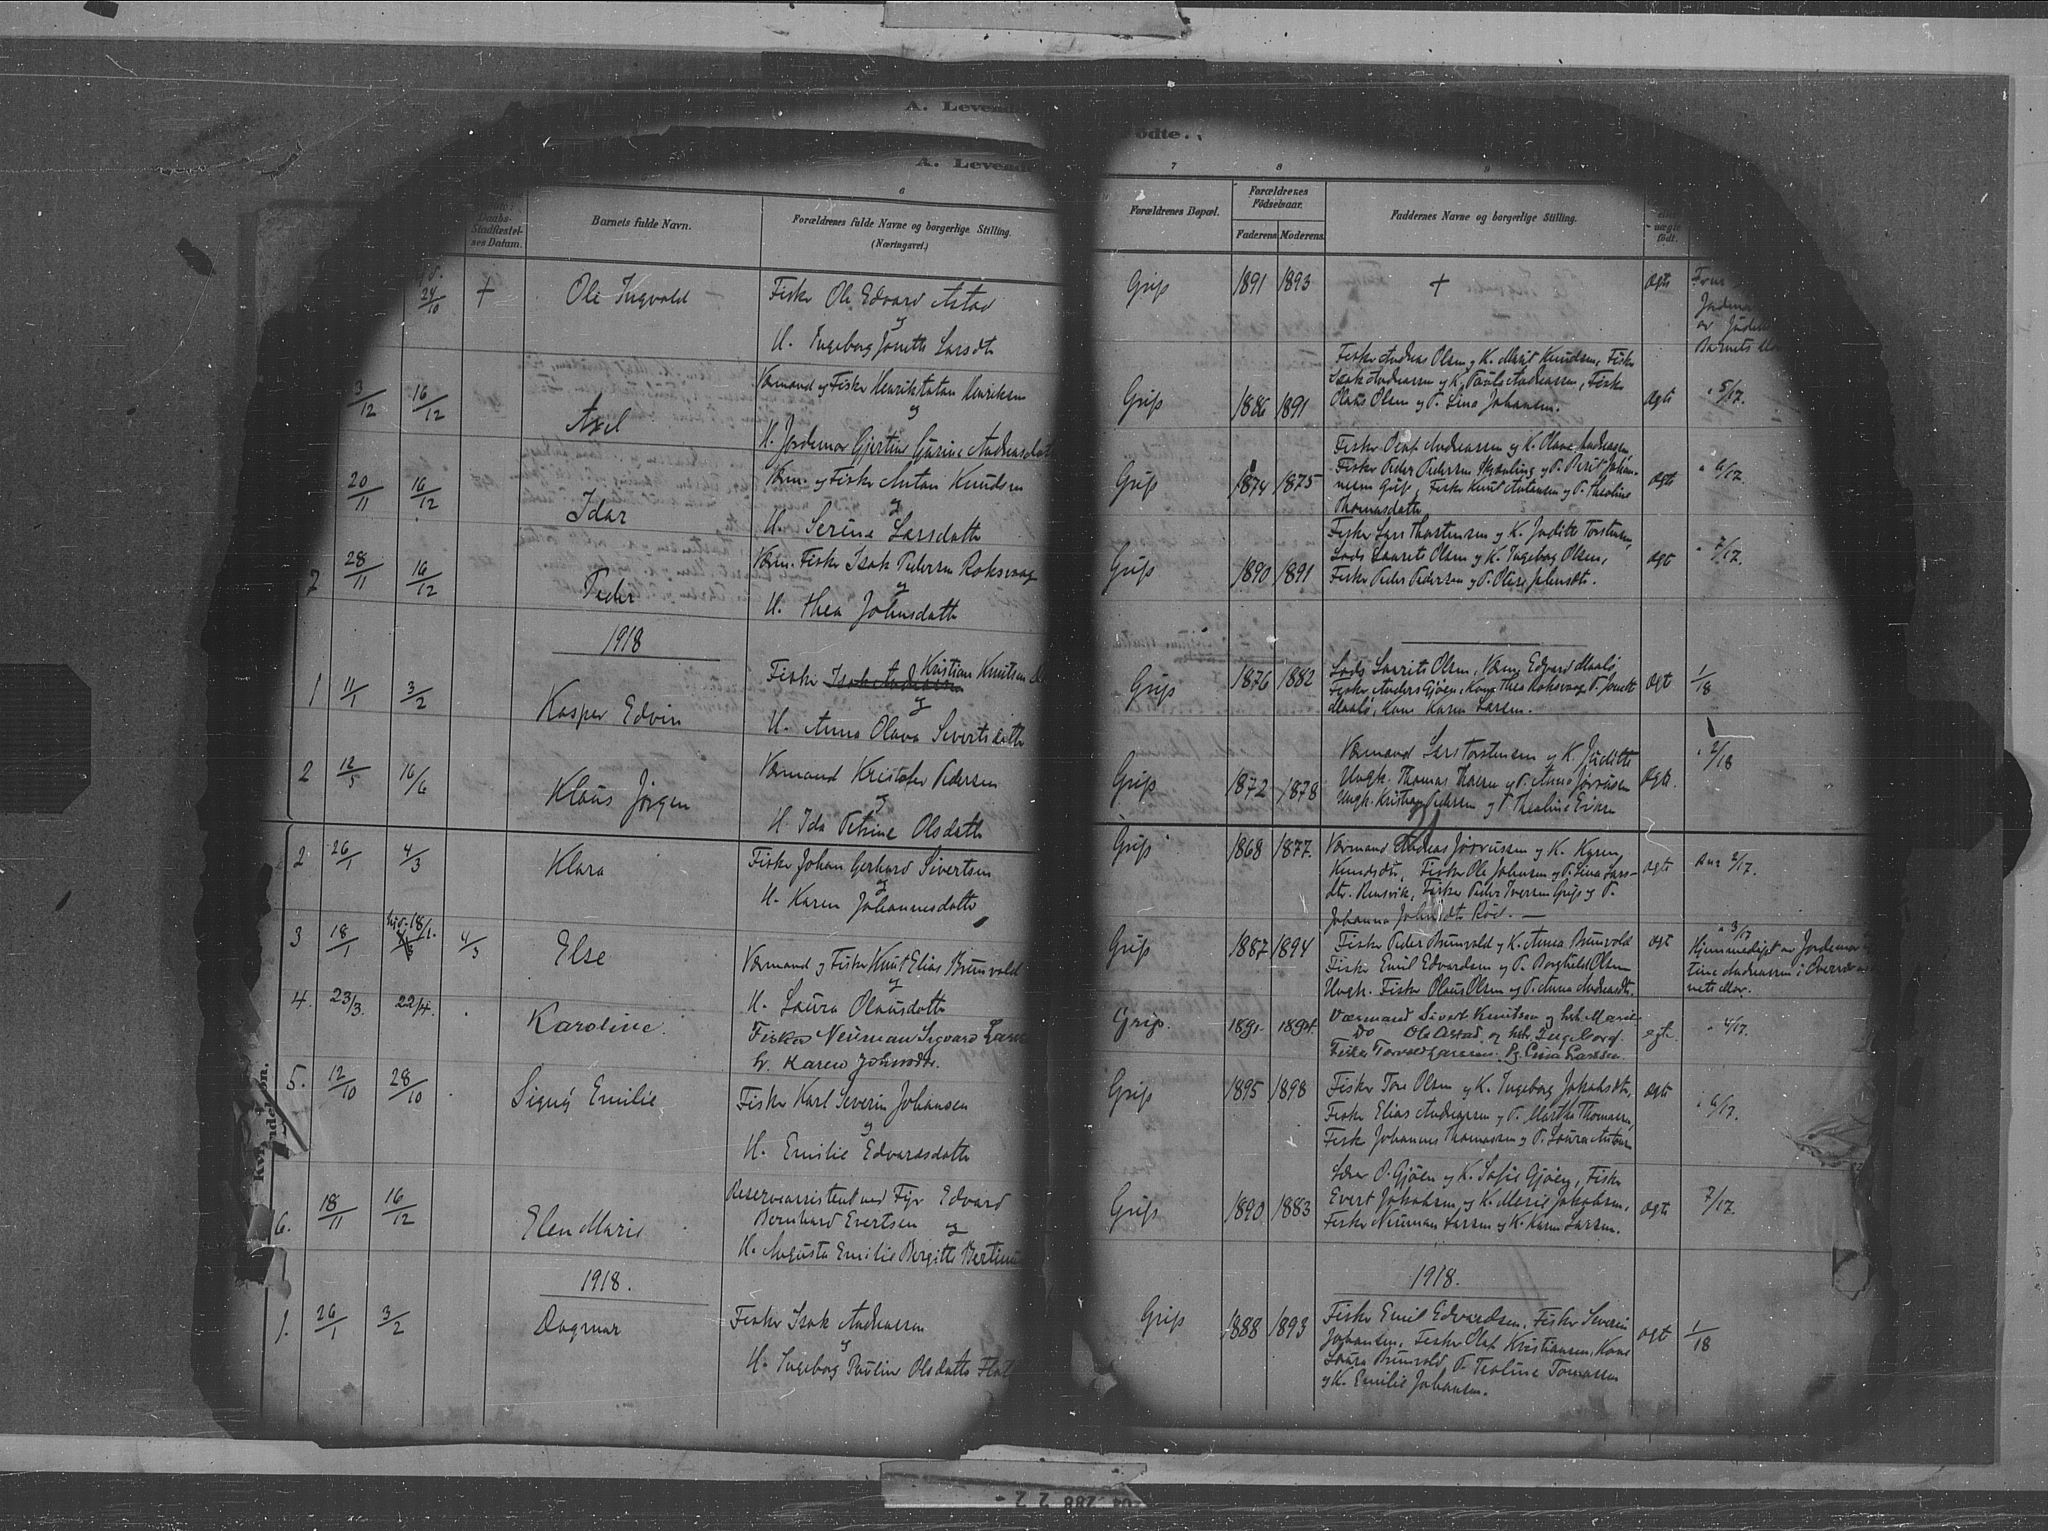 A. Levend
ödte.
A. Levende
6
7
8
9
Daabs-
Stadfæstel-
ses Datum.
Barnets fulde Navn.
Forældrenes fulde Navne og borgerlige Stilling.
(Næringsvei.)
Forældrenes Bopæl.
Forældrenes
Födselsaar.
Faderens
Moderens
Faddernes Navne og borgerlige Stilling.
ægte
födt.
24/10 + Ole Ingvald Fisker Ole Edvard Astad
og
H. Ingeborg Jonette Larsdtr
Grip 1891 1893 + ægte
Jordmor
av
Barnets
3/12 16/12 Axel Værmand og Fisker Henrik Henriksen
og
H. Jordemor Gjertine Gurine Andreasdatter
Grip 1886 1891
Fisker Andreas Olsen og K. Marit Knudsen, Fisker
Isak Andreassen og K. Paula Andreassen, Fisker
Olaus Olsen og P. Lina Johansen.
ægte 5/17.
20/11 16/12 Idar Værm. og Fisker Anton Knudsen
og
H. Serine Larsdatter
Grip 1874 1875
Fisker Olaf Andreassen og K. Olave Andreassen,
Fisker Peder Pedersen og P. Berit Johan-
nesen Grip, Fisker Knut Antonsen og P. Theoline
Thomasdatter
ægte 6/17.
7 28/11 16/12 Peder Værm. Fisker Isak Pedersen Roksvaag
og
H. Thea Johnsdatter
Grip 1890 1891
Fisker Lars Thorstensen og K. Judithe Torstensen,
Lods Laurits Olsen og K. Ingeborg Olsen,
Fisker Peder Pedersen og P. Oline Johnsdtr.
ægt 7/17.
1918
1 11/1 3/2 Kasper Edvin Fisker Isak Andreassen Kristian Knutsen
og
H. Anna Olava Sivertsdatter
Grip 1876 1882
Lods Laurits Olsen, Værm. Edvard Maalø,
Fisker Anders Gjøen, Kone Thea Roksvaag P. Jonette
Maalø, Kone Karen Larsen.
ægt 1/18
2 12/5 16/6 Klaus Jørgen Værmand Kristofer Pedersen
og
H. Ida Petrine Olsdatter
Grip 1872 1878
Værmand Lars Torstensen og K. Judithe
Ungk. Thomas Thoresen og P. Anna Jørvusen
Ungk. Kristian Pedersen og P. Thealine
ægte. 2/18
Kvindekjøn.
2. 26/1 4/3 Klara Fisker Johan Gerhard Sivertsen
og
H. Karen Johannesdatter
Grip 1868 1877.
Værmand Andreas Jørvussen og K. Karen
Knudsdtr, Fisker Ole Johnsen og P. Lina Lars-
dtr. Rensvik, Fisker Peder Iversen Grip og P.
Johanna Johnsdtr Röd. —
ægte 2/17.
3 18/1 18/1. 4/3 4/3 Else Værmand og Fisker Knut Elias Brunvold
og
H. Laura Olausdatter
Grip 1887 1894
Fisker Peder Brunvold og K. Anna Brunvold
Fisker Emil Edvardsen og P. Borghild Olsen
Ungk. Fisker Olaus Olsen og P. Anna Andreasdtr.
ægt 3/17
Hjemmedøpt av Jordemor
tine Andreassen i Overvær av
nets Mor.
4. 23/3. 22/4. Karoline. Fisker Neuman Sigvard Larsen
h. Karen Johnsdtr.
Grip. 1891- 1894.
Værmand Sivert Knutsen og hstr Marie
Do Ole Astad og hstr Ingeborg
Fisker Torvald Larssen. Pg. Lina Larssen
egte. 4/17.
5. 12/10 28/10 Signy Emilie Fisker Karl Severin Johansen
og
H. Emilie Edvardsdatter
Grip 1895 1898
Fisker Tore Olsen og K. Ingeborg Jakobsdtr,
Fisker Elias Andreassen og P. Martha Thomassen,
Fisker Johannes Thomassen og P. Laura Antonsen
ægte 6/17.
6. 18/11 16/12 Elen Marie Reserveassistent ved Fyr Edvard
Bernhard Evertsen og
H. Augusta Emilie Bergitte Bertinus
Grip 1890 1883
O. Gjøen og K. Sofie Gjøen, Fisker
Evert Jakobsen og K. Marie Jakobsen,
Fisker Neuman Larsen og K. Karen Larsen.
ægte 7/17.
1918. 1918.
1. 26/1 3/2 Dagmar Fisker Isak Andreassen
og
H. Ingeborg Pauline Olsdatter
Grip 1888 1893
Fisker Emil Edvardsen, Fisker Severin
Johansen, Fisker Olaf Kristiansen, Kone
Laura Brunvold, P. Teoline Tomassen
og K. Emilie Johansen.
ægte 1/18